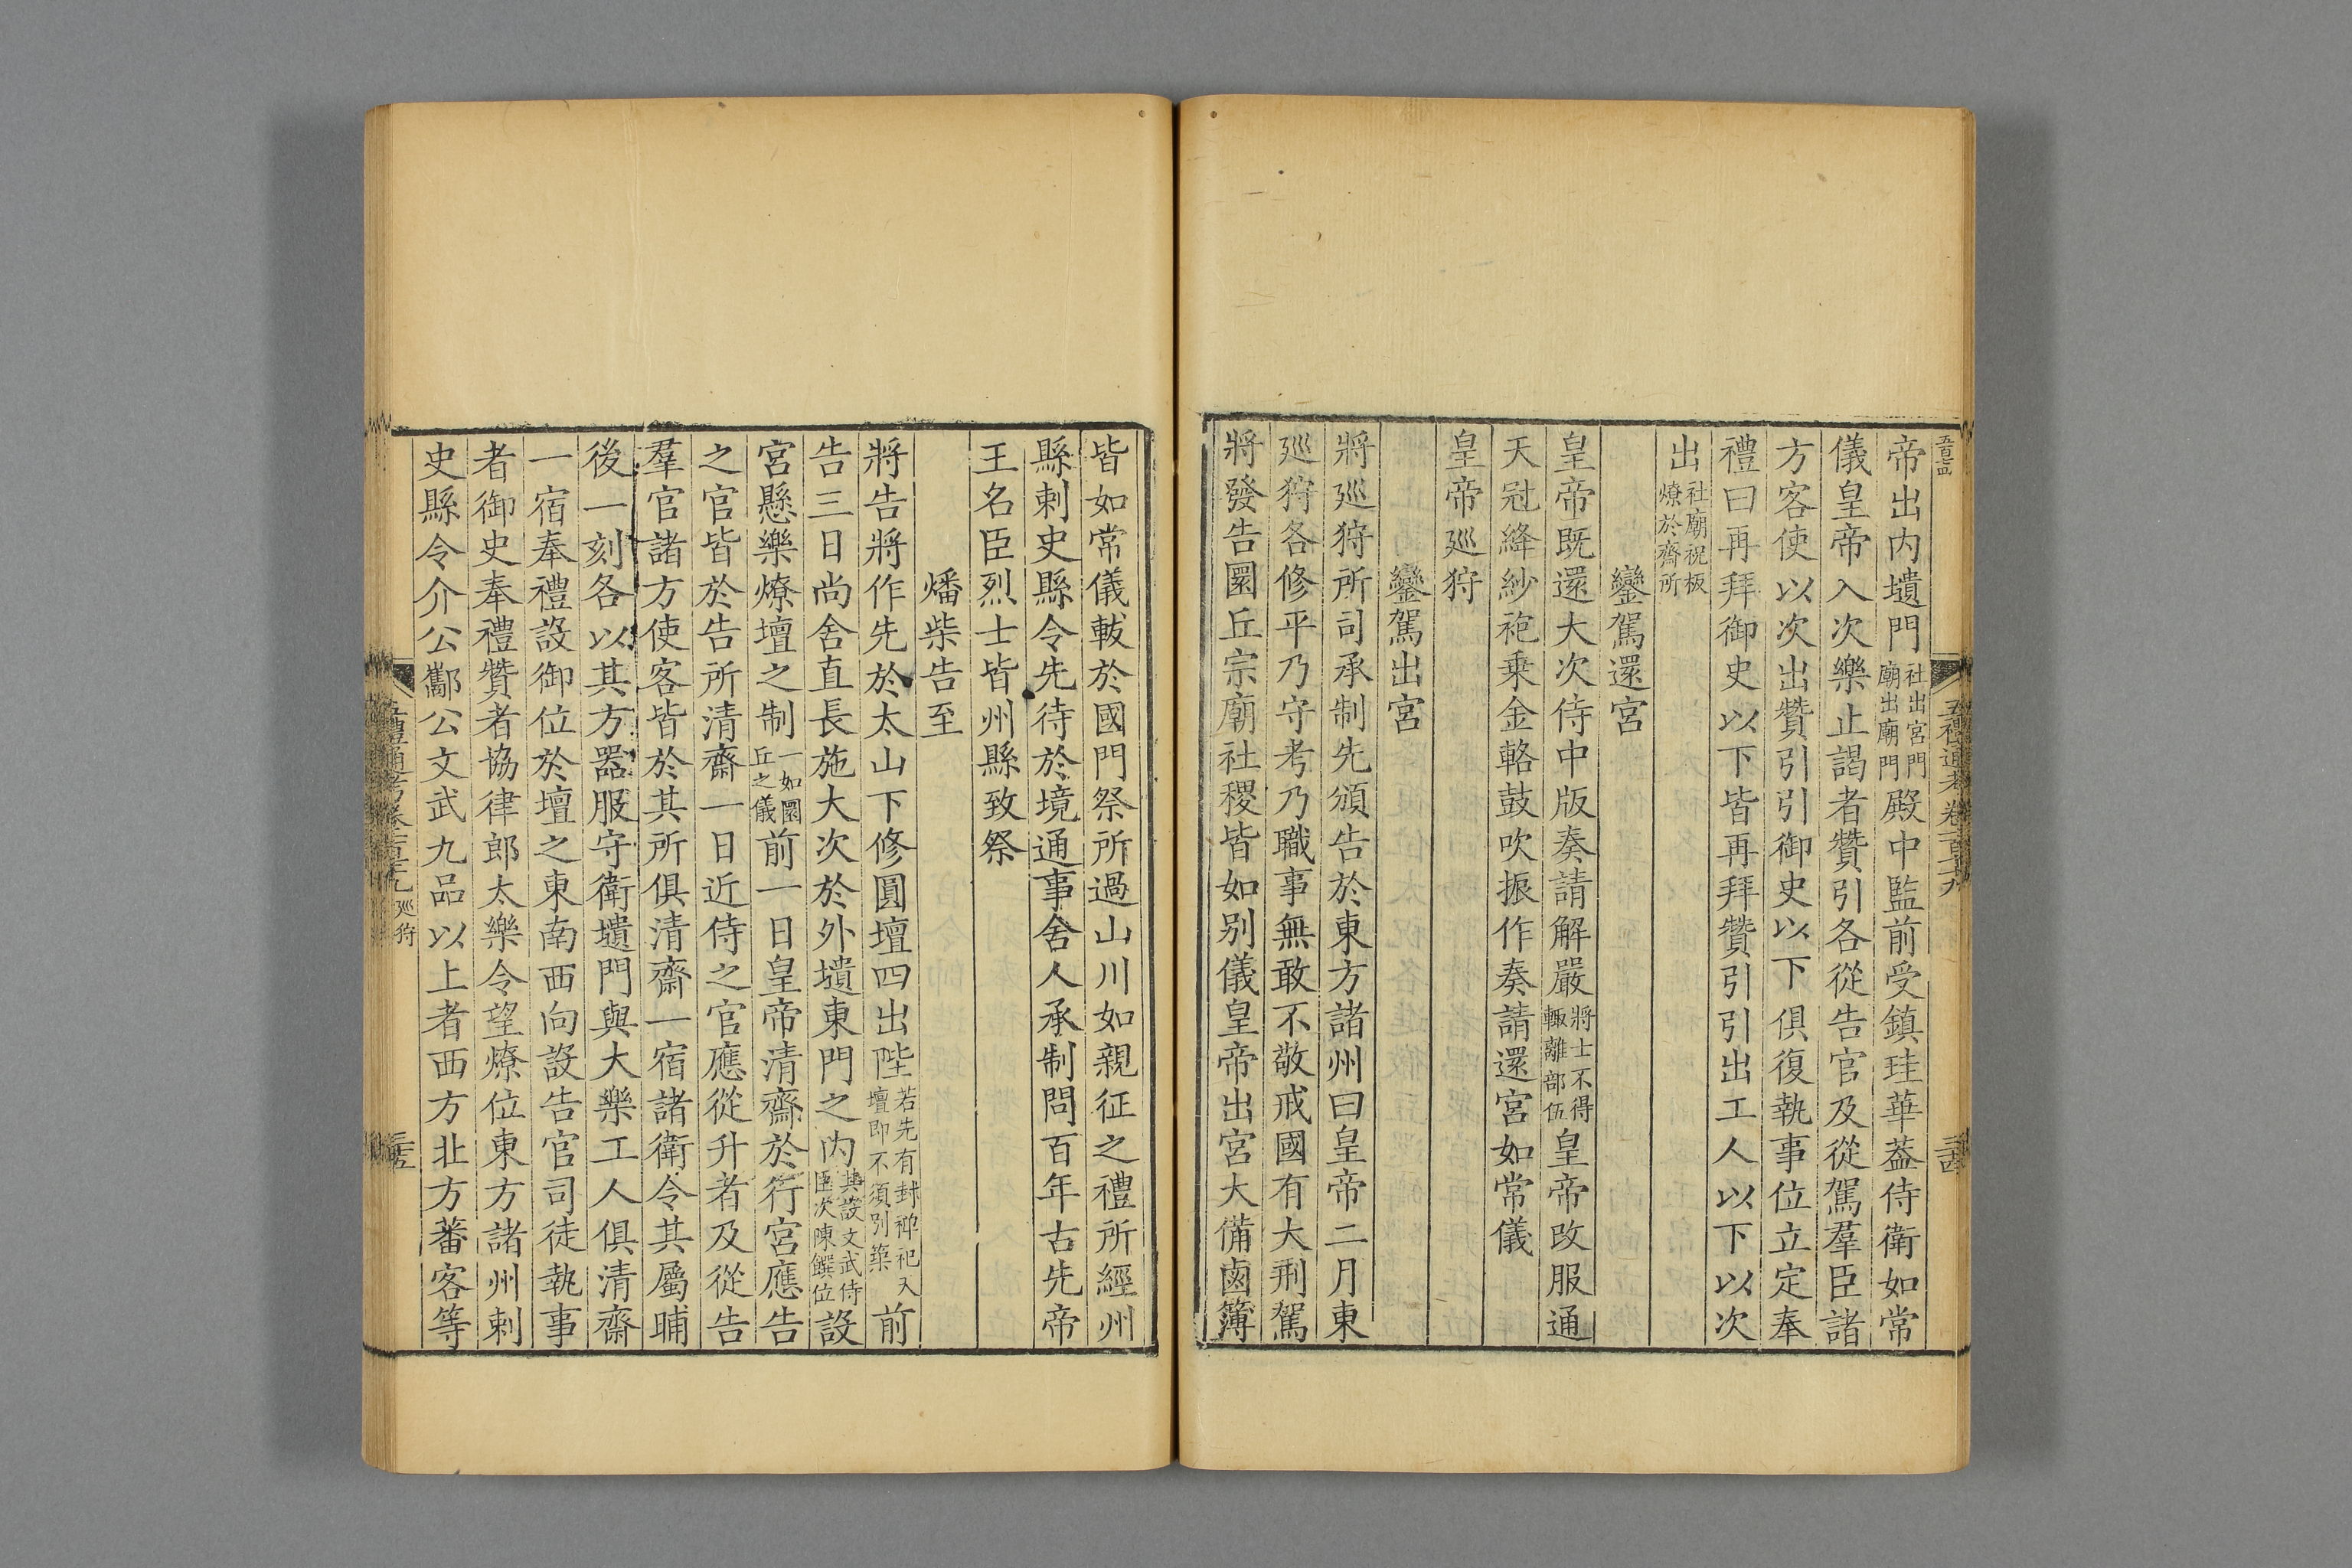 帝出内壝門社出宮門廟出廟門殿中監前受鎮珪華葢侍衛如常
儀皇帝入次樂止謁者贊引各從告官及從駕羣臣諸
方客使以次出贊引引御史以下俱復執事位立定奉
禮曰再拜御史以下皆再拜贊引引出工人以下以次
出社廟祝板燎於齊所
鑾駕還宮
皇帝既還大次侍中版奏請解嚴將士不得輙離部伍皇帝改服通
天冠絳紗袍乗金輅鼓吹振作奏請還宮如常儀
皇帝廵狩
鑾駕出宮
將廵狩所司承制先頒告於東方諸州曰皇帝二月東
廵狩各修平乃守考乃職事無敢不敬戒國有大刑駕
將發告圜丘宗廟社稷皆如别儀皇帝出宮大備鹵簿
五禮通考卷一百七十九
三十四
皆如常儀軷於國門祭所過山川如親征之禮所經州
縣刺史縣令先待於境通事舍人承制問百年古先帝
王名臣烈士皆州縣致祭
燔柴告至
將告將作先於太山下修圓壇四出陛若先有封禪祀入壇即不須别築前
告三日尚舍直長施大次於外壝東門之内其設文武侍臣次陳饌位設
宮懸樂燎壇之制一如圜丘之儀前一日皇帝清齋於行宮應告
之官皆於告所清齋一日近侍之官應從升者及從告
羣官諸方使客皆於其所俱清齋一宿諸衛令其屬晡
後一刻各以其方器服守衛壝門與大樂工人俱清齋
一宿奉禮設御位於壇之東南西向設告官司徒執事
者御史奉禮贊者協律郎太樂令望燎位東方諸州刺
史縣令介公酅公文武九品以上者西方北方蕃客等
廵狩
三十五